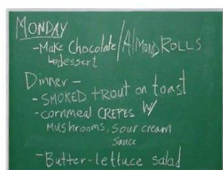 MONDAY
- Make Chocolate / Almond ROLLS
↳ dessert
Dinner -
- SMOKED trout on toast
- cornmeal CREPES W/
Mushrooms, Sour cream
Sauce
- Butter-lettuce salad